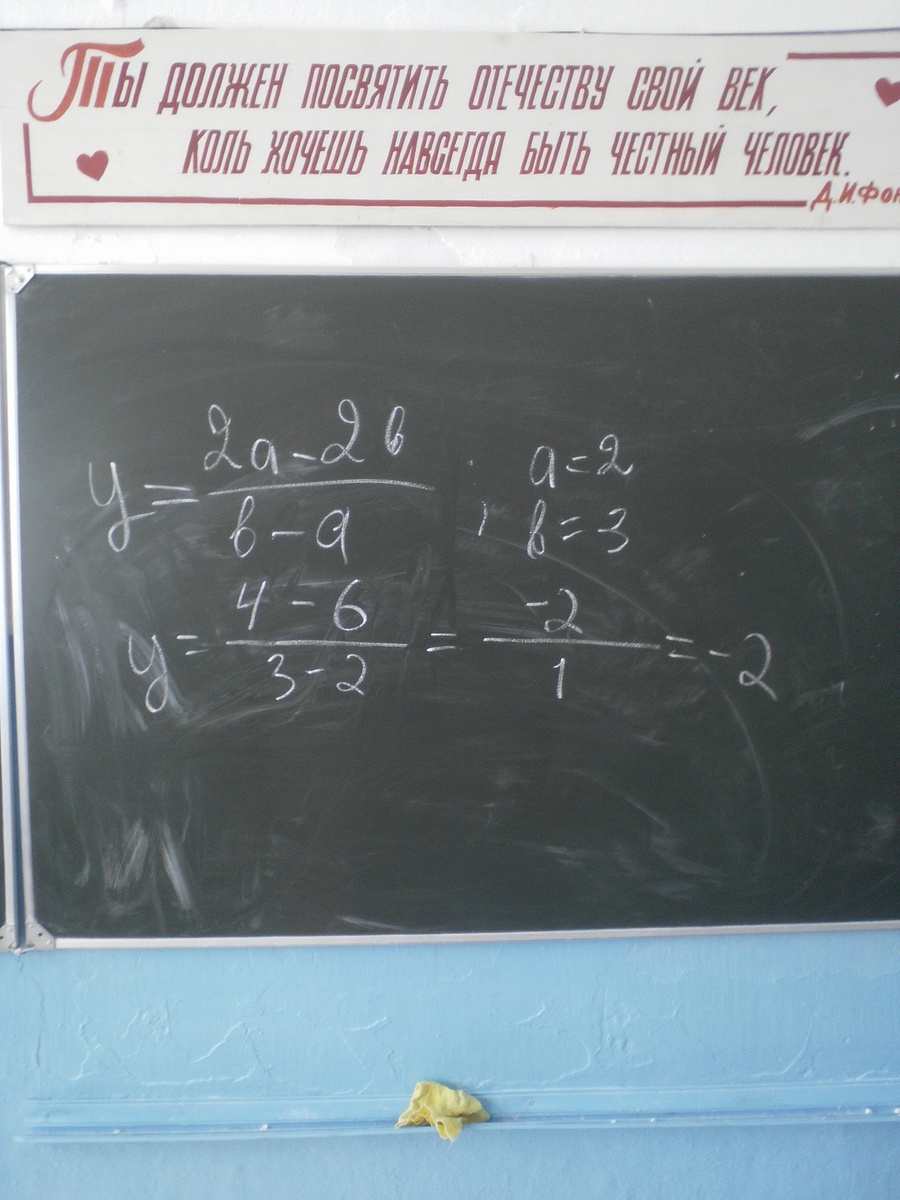 Ты должен посвятить отечеству свой век,
коль хочешь навсегда быть честный человек.
Д.И.Фон
y = (2a - 2b) / (b - a) , a = 2
b = 3
y = (4 - 6) / (3 - 2) = -2 / 1 = -2